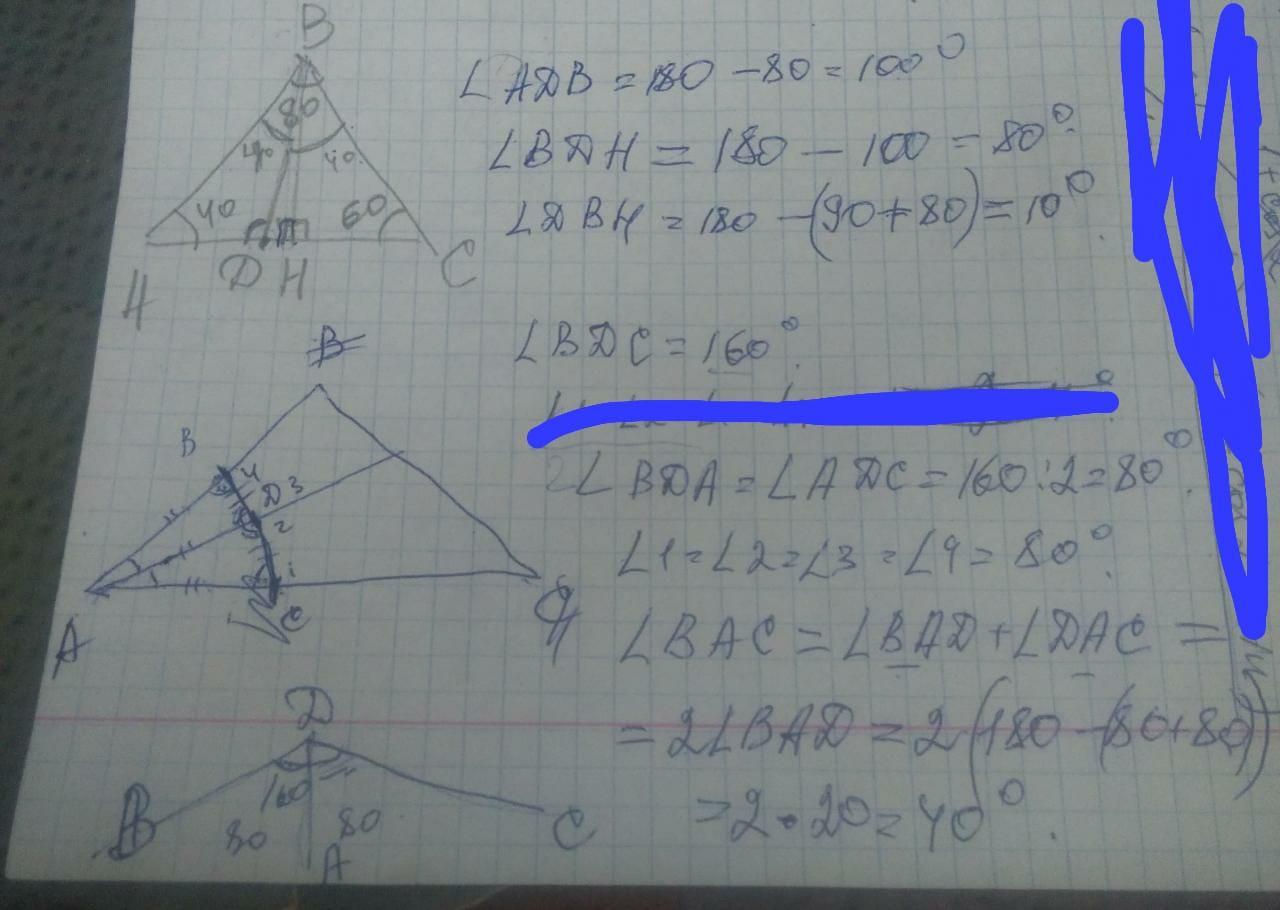 B
80
40
40
40
60
A
D
H
C
∠ADB = 180 - 80 = 100°
∠BDH = 180 - 100 = 80°.
∠DBH = 180 - (90 + 80) = 10°.
∠BDC = 160°.
∠BDA = ∠ADC = 160 : 2 = 80°.
∠1 = ∠2 = ∠3 = ∠4 = 80°.
∠BAC = ∠BAD + ∠DAC =
= 2∠BAD = 2(180 - (80 + 80))
= 2 · 20 = 40°.
B
B
4
D
3
2
1
A
C
D
160
B
80
80
C
A